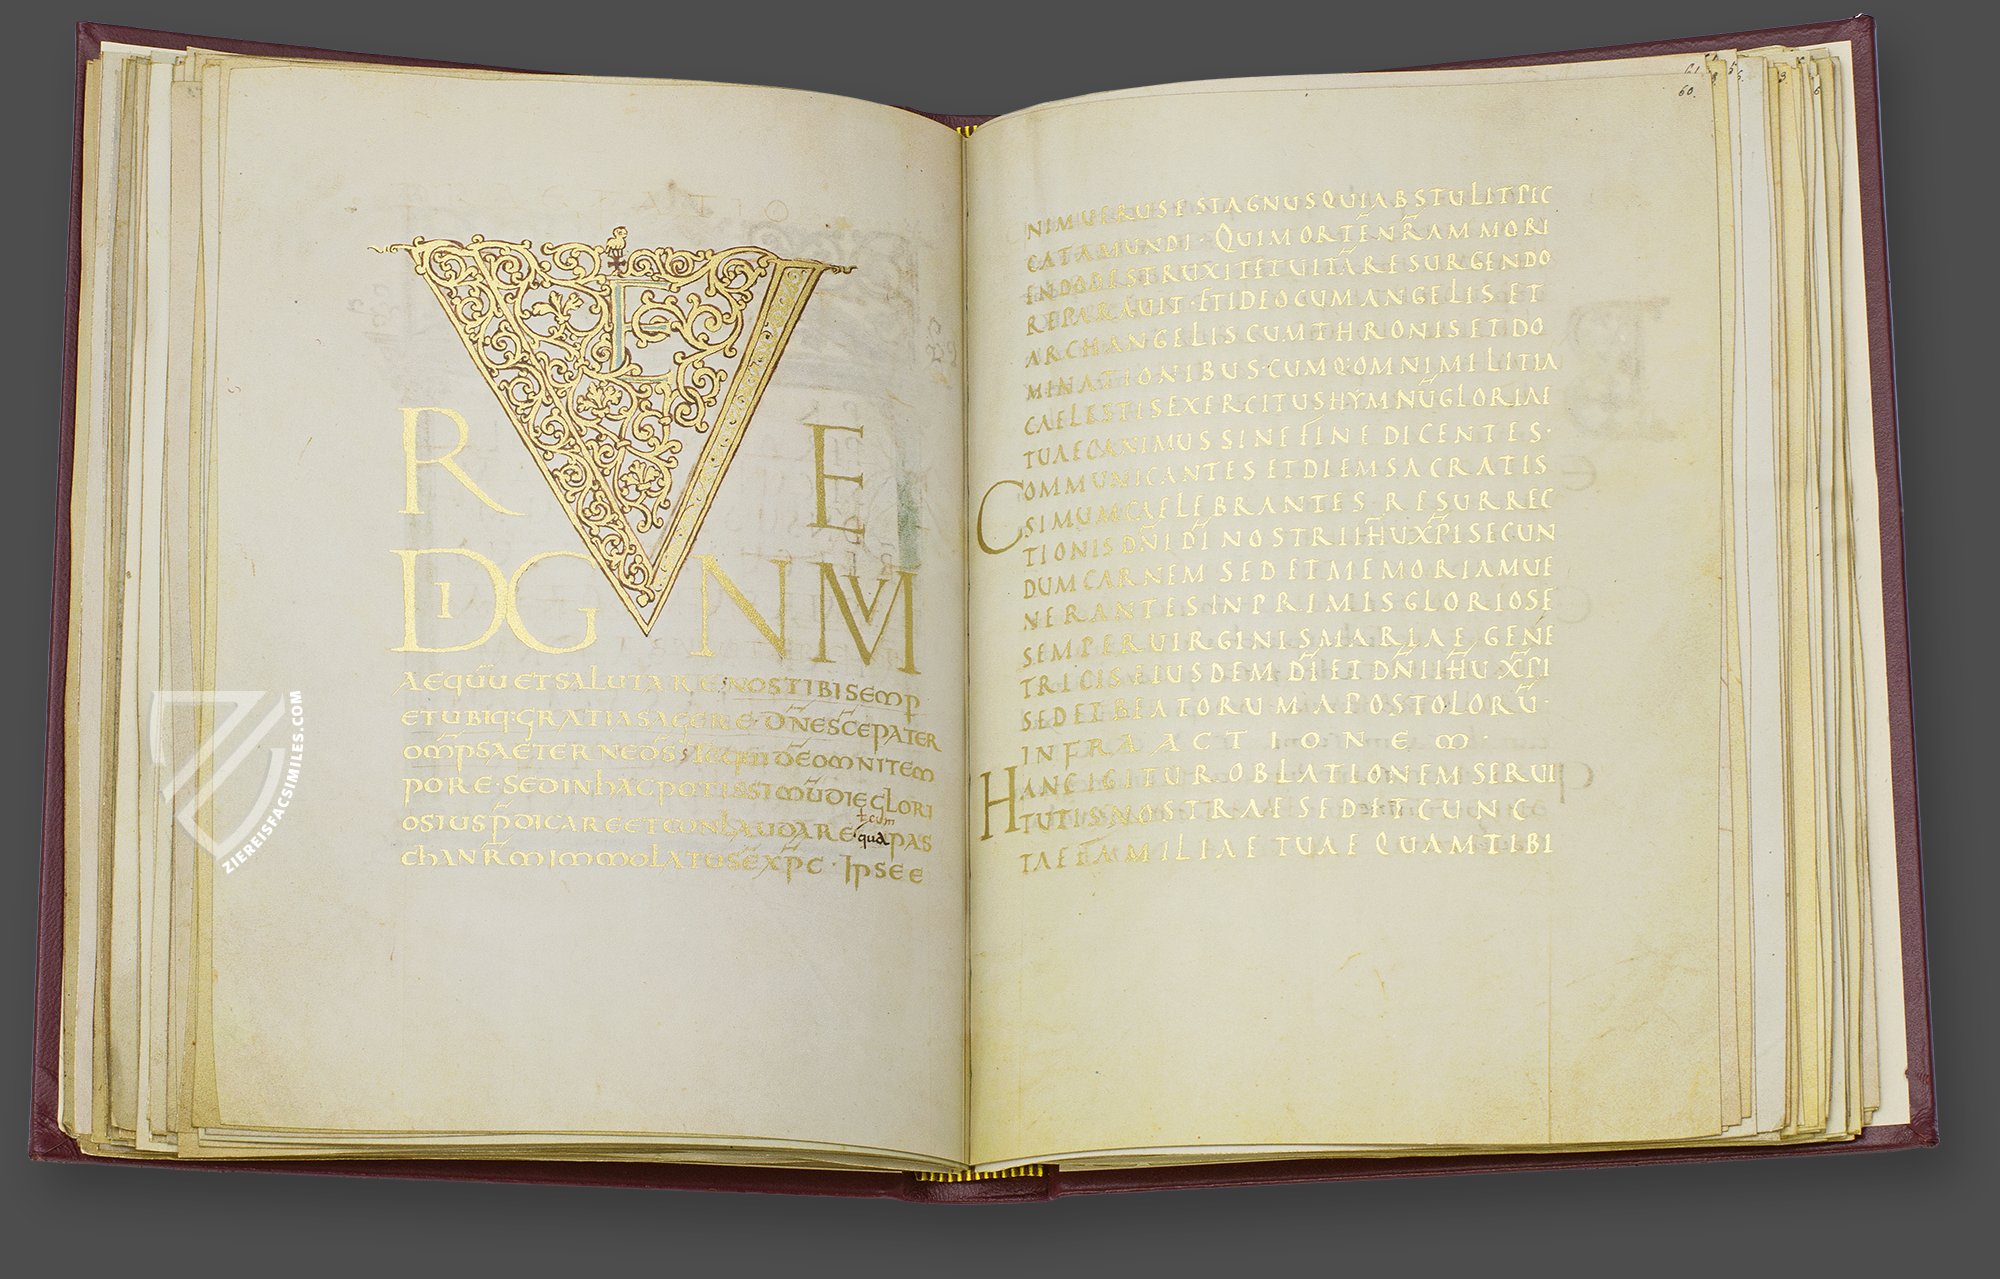 VE
R E
DIGNVM
AEQŪU ET SALUTARE, NOS TIBI SEMP
ET UBIQ: GRATIAS AGERE · DN̄E SC̄E PATER
OM̄PS AETERNE DS̄, ET TE QUIDE OMNI TEM
PORE · SED IN HAC POTISSIMŪ DIE GLORI
&cum
OSIUS P̄DICARE ET CONLAUDARE qua PAS
CHA NR̄M IMMOLATUS Ē XP̄C · IPSE E
61
60.
NIM UERUS EST AGNUS QUI ABSTULIT PEC
CATA MUNDI · QUI MORTĒ NR̄AM MORI
ENDO DESTRUXIT ET UITĀ RESURGENDO
REPARAUIT · ET IDEO CUM ANGELIS ET
ARCHANGELIS CUM THRONIS ET DO
MINATIONIBUS · CUMQ: OMNI MILITIA
CAELESTIS EXERCITUS HYMNŪ GLORIAE
TUAE CANIMUS SINE FINE DICENTES ·
COMMUNICANTES ET DIEM SACRATIS
SIMUM CAELEBRANTES RESURREC
TIONIS DN̄I DĪ NOSTRI IH̄U XP̄I SECUN
DUM CARNEM SED ET MEMORIAM UE
NERANTES IN PRIMIS GLORIOSE
SEMPER UIRGINIS MARIAE GENE
TRICIS EIUSDEM DĪ ET DN̄I IH̄U XP̄I
SED ET BEATORUM APOSTOLORŪ ·
INFRA ACTIONEM ·
HANC IGITUR OBLATIONEM SERUI
TUTIS NOSTRAE SED ET CUNC
TAE FAMILIAE TUAE QUAM TIBI
ZIEREISFACSIMILES.COM